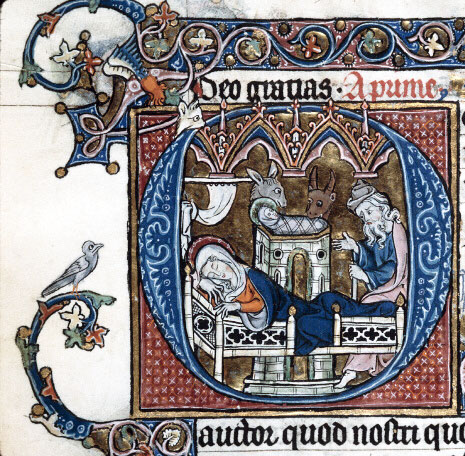 Deo gratias · A prime,
auctor quod nostri quo